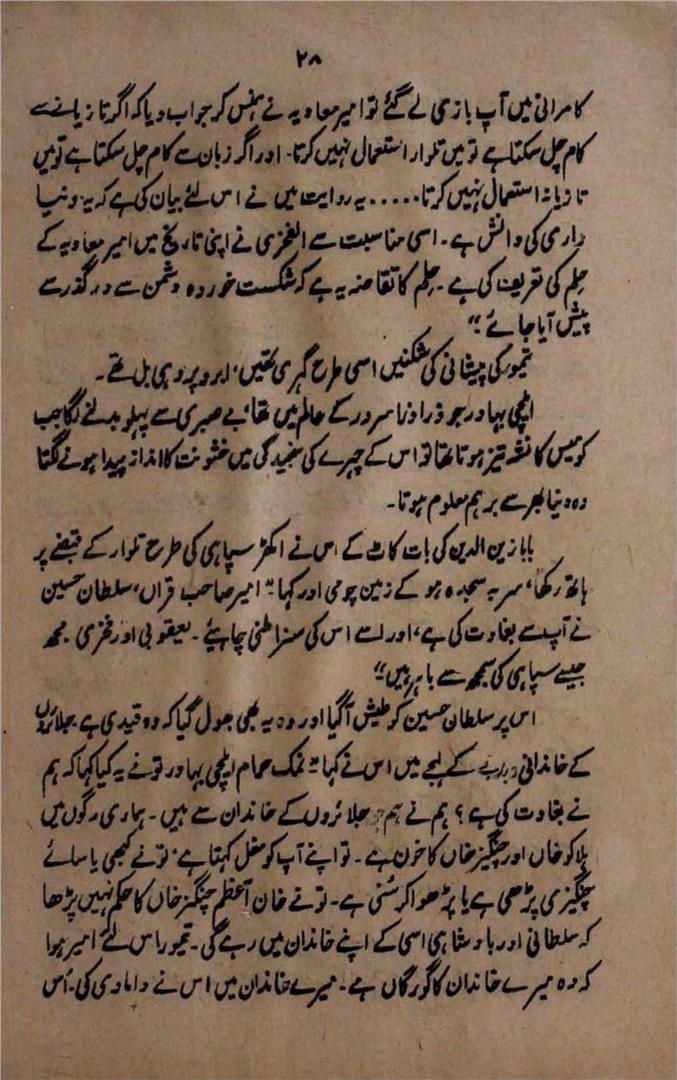 ۲۸
کامرانی میں آپ بازی لے گئے تو امیر معاویہ نے ہنس کر جواب دیا کہ اگر تازیانے سے
کام چل سکتا ہے تو میں تلوار استعمال نہیں کرتا۔ اور اگر زبان سے کام چل سکتا ہے تو میں
تازیانہ استعمال نہیں کرتا..... یہ روایت میں نے اس لئے بیان کی ہے کہ یہ دنیا
داری کی دانش ہے۔ اسی مناسبت سے الفخری نے اپنی تاریخ میں امیر معاویہ کے
حِلم کی تعریف کی ہے۔ حِلم کا تقاضہ یہ ہے کہ شکست خوردہ دشمن سے درگذر سے
پیش آیا جائے؛"
تیمور کی پیشانی کی شکنیں اسی طرح گہری تھیں، ابرو پر وہی بل تھے۔
ایلچی بہادر جو ذرا سرور کے عالم میں تھا، بے صبری سے پہلو بدلنے لگا جب
کومیس کا نشہ تیز ہوتا تھا تو اس کے چہرے کی سنجیدگی میں خشونت کا انداز پیدا ہونے لگتا
وہ دنیا بھر سے برہم معلوم ہوتا۔
بابا زین الدین کی بات کاٹ کے اس نے اکھڑ سپاہی کی طرح تلوار کے قبضے پر
ہاتھ رکھا، سر بہ سجدہ ہو کے زمین چومی اور کہا "امیر صاحب قراں، سلطان حسین
نے آپ سے بغاوت کی ہے، اور اسے اس کی سزا ملنی چاہیئے۔ یعقوبی اور فخری مجھ
جیسے سپاہی کی سمجھ سے باہر ہیں"
اس پر سلطان حسین کو طیش آ گیا اور وہ یہ بھی بھول گیا کہ وہ قیدی ہے۔ جلائروں
کے خاندانی دبدبے کے لہجے میں اس نے کہا "نمک حرام ایلچی بہادر تو نے یہ کیا کہا کہ ہم
نے بغاوت کی ہے؟ ہم نے ہم جلائروں کے خاندان سے ہیں۔ ہماری رگوں میں
ہلاکو خاں اور چنگیز خاں کا خون ہے۔ تو اپنے آپ کو مغل کہتا ہے، تو نے کبھی یاسائے
چنگیزی پڑھی ہے یا پڑھوا کر سُنی ہے۔ تو نے خان آعظم چنگیز خاں کا حکم نہیں پڑھا
کہ سلطانی اور بادشاہی اسی کے اپنے خاندان میں رہے گی۔ تیمور اس لئے امیر ہوا
کہ وہ میرے خاندان کا گورگاں ہے۔ میرے خاندان میں اس نے دامادی کی۔ اُس